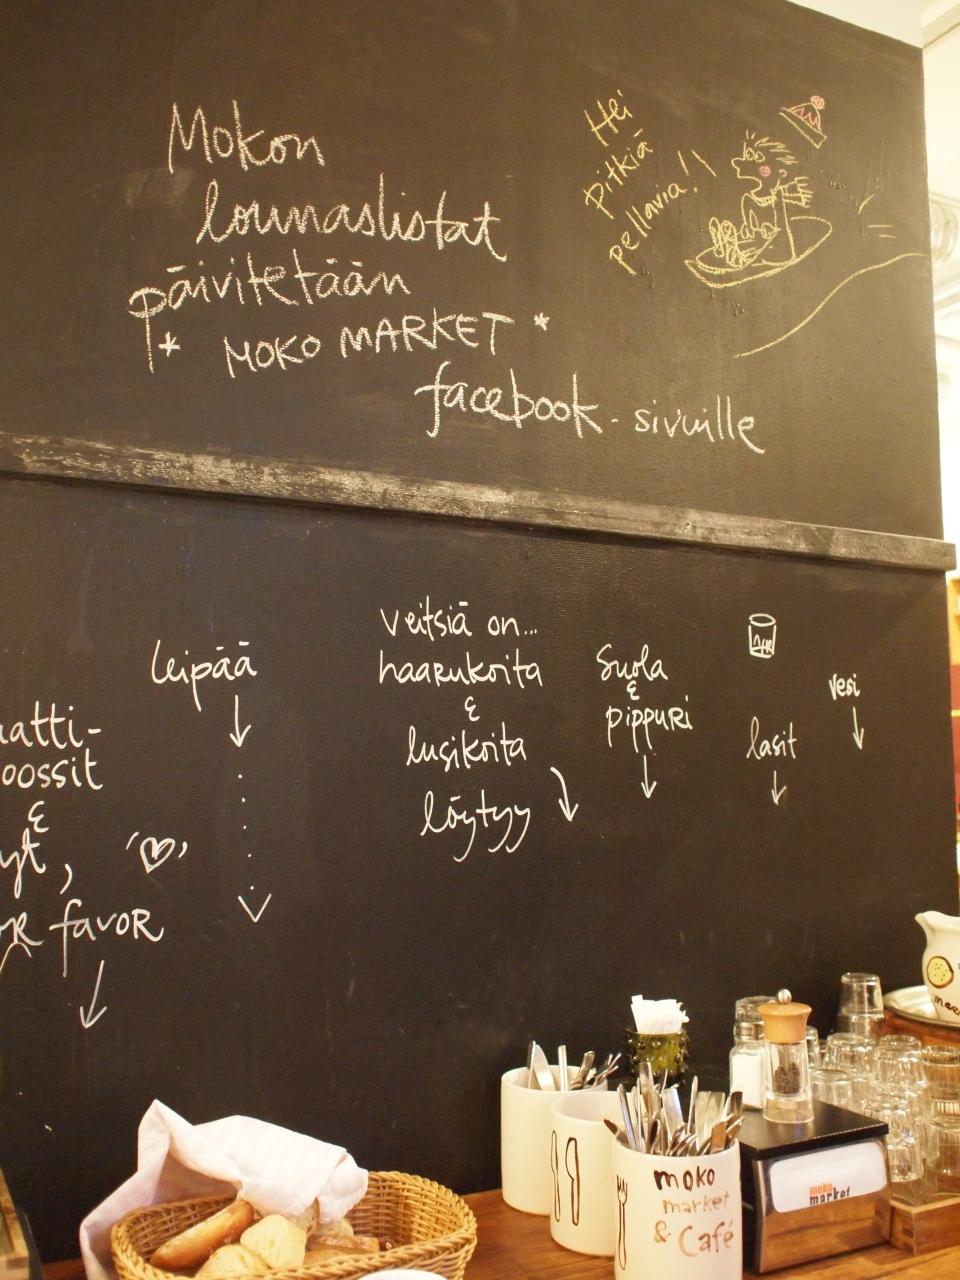 Mokon
lounaslistat
päivitetään
* MOKO MARKET *
facebook - sivuille
Hei
pitkiä
pellavia!!
leipää
veitsiä on...
haarukoita
&
lusikoita
löytyy
Suola
&
pippuri
lasit
vesi
aatti-
oossit
&
yt,
OR favoR
moko
market
& Café
moko
market